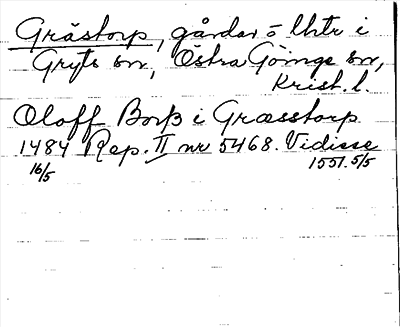 Grästorp, gårdar o lhtr i
Gryts sn, Östra Göinge sn,
Krist. l.
Oloff Borß i Græsstorp
1484 Rep. II nr 5468. Vidisse
16/5 1551.5/5